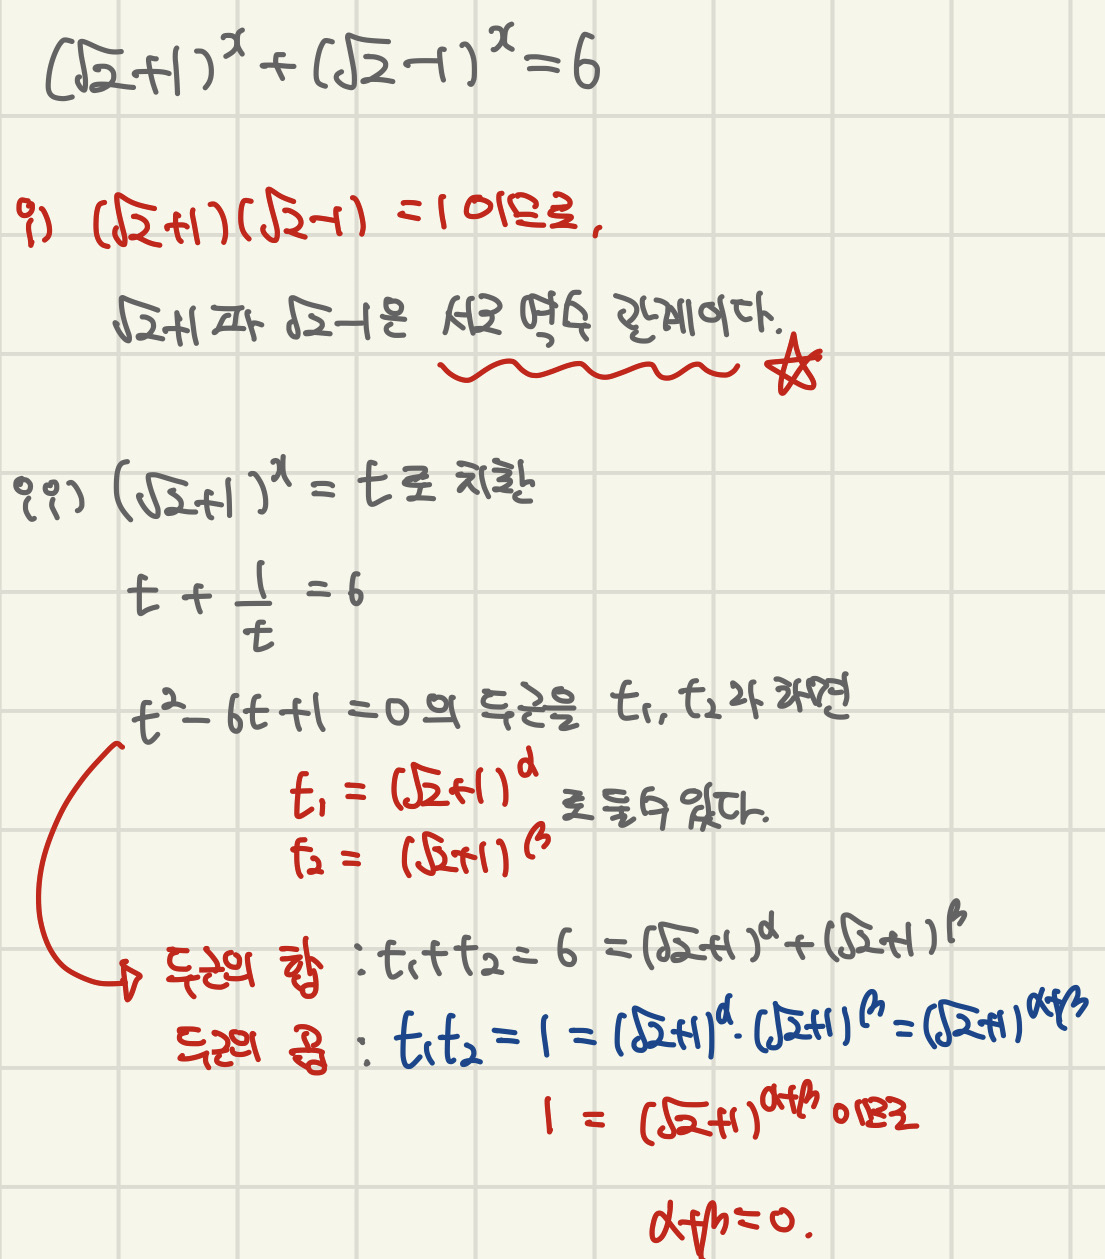 (√2+1)^x + (√2-1)^x = 6
i) (√2+1)(√2-1) = 1 이므로,
√2+1 과 √2-1은 서로 역수 관계이다.
ii) (√2+1)^x = t 로 치환
t + 1/t = 6
t² - 6t + 1 = 0 의 두근을 t₁, t₂ 라 하면
t₁ = (√2+1)^α
로 둘 수 있다.
t₂ = (√2+1)^β
두근의 합 : t₁ + t₂ = 6 = (√2+1)^α + (√2+1)^β
두근의 곱 : t₁t₂ = 1 = (√2+1)^α · (√2+1)^β = (√2+1)^α+β
1 = (√2+1)^α+β 이므로
α+β = 0.